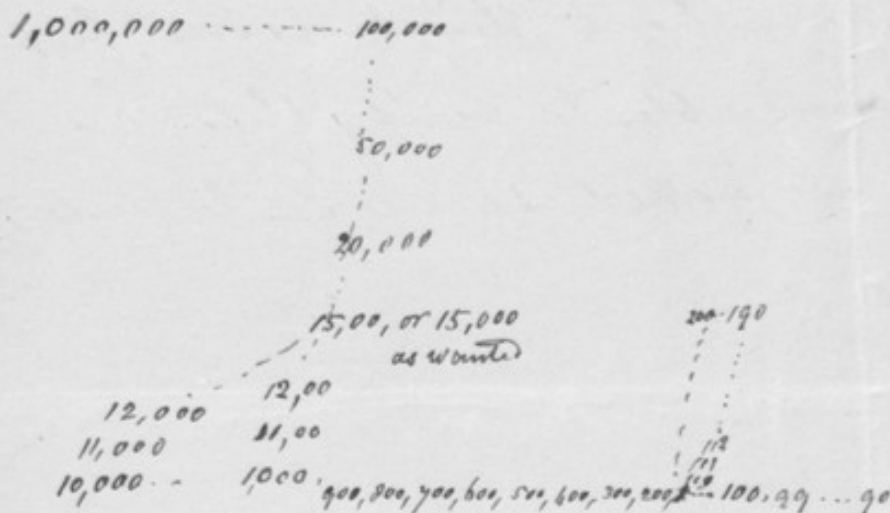 1,000,000 ------- 100,000
50,000
20,000
15,00, or 15,000
as wanted
200-190
12,000 12,00
11,000 11,00
112
111
110
10,000 -- 1,000. 900, 800, 700, 600, 500, 400, 300, 200, 100. 99 ... 90